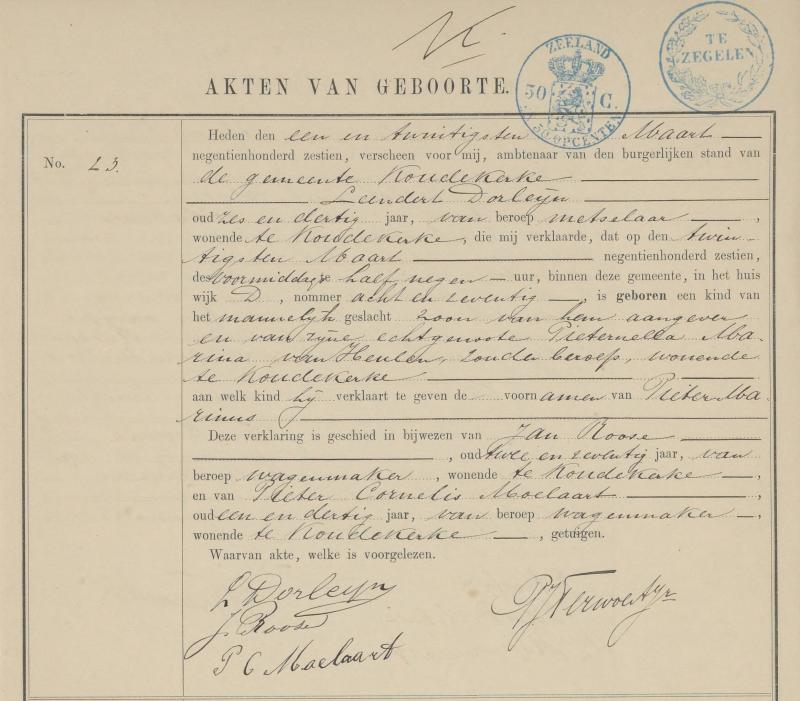 ZEELAND
50 C.
50 OPCENTEN
TE
ZEGELEN
AKTEN VAN GEBOORTE.
No. 23.
Heden den een en twintigsten Maart
negentienhonderd zestien, verscheen voor mij, ambtenaar van den burgerlijken stand van
de gemeente Koudekerke
Leendert Dorleijn
oud zes en dertig jaar, van beroep metselaar,
wonende te Koudekerke, die mij verklaarde, dat op den twin-
tigsten Maart negentienhonderd zestien,
des voormiddags te half negen uur, binnen deze gemeente, in het huis
wijk D, nommer acht en zeventig, is geboren een kind van
het mannelijk geslacht zoon van hem aangever
en van zijne echtgenoote Pieternella Ma-
rina van Heulen, zonder beroep, wonende
te Koudekerke
aan welk kind hij verklaart te geven de voornamen van Pieter Ma-
rinus
Deze verklaring is geschied in bijwezen van Jan Roose
, oud twee en zeventig jaar, van
beroep wagenmaker, wonende te Koudekerke,
en van Pieter Cornelis Moelaart,
oud een en dertig jaar, van beroep wagenmaker,
wonende te Koudekerke, getuigen.
Waarvan akte, welke is voorgelezen.
L Dorleijn
J. Roose
P C Moelaart